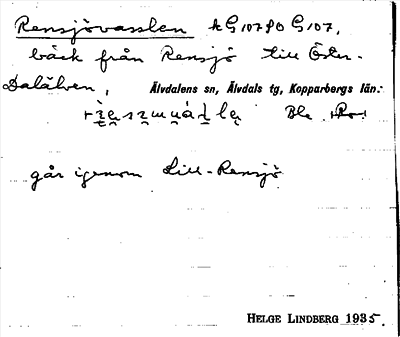 Rensjövasslen AG 107 80 G 107,
bäck från Rensjö till Öster-
Dalälven, Älvdalens sn, Älvdals tg, Kopparbergs län.
går igenom Lill-Rensjö
HELGE LINDBERG 1935.